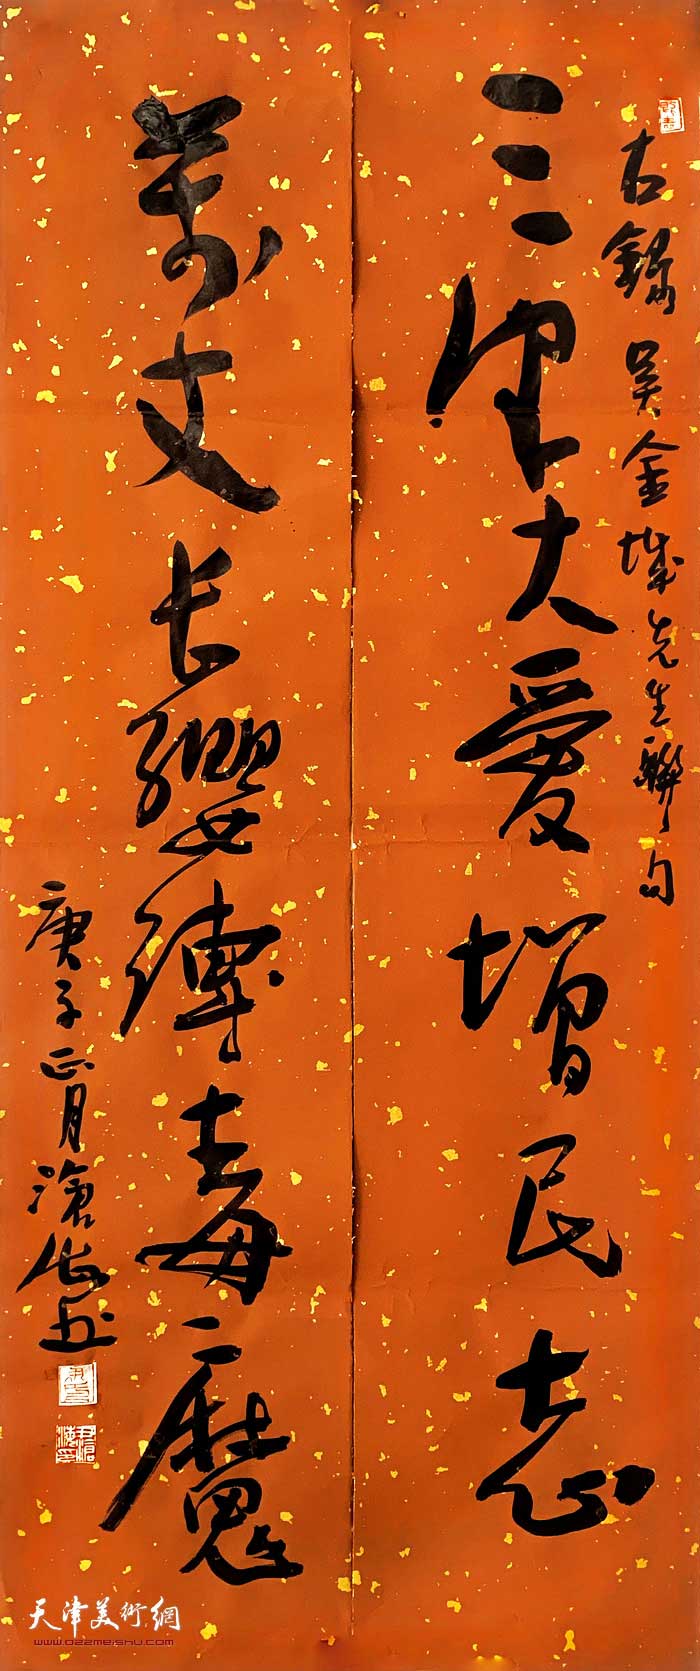 右錄吴金城先生聯句
三津大愛增民志
萬丈長纓縛毒魔
庚子正月滄海书
尹滄海印
天津美術網
www.022meishu.com